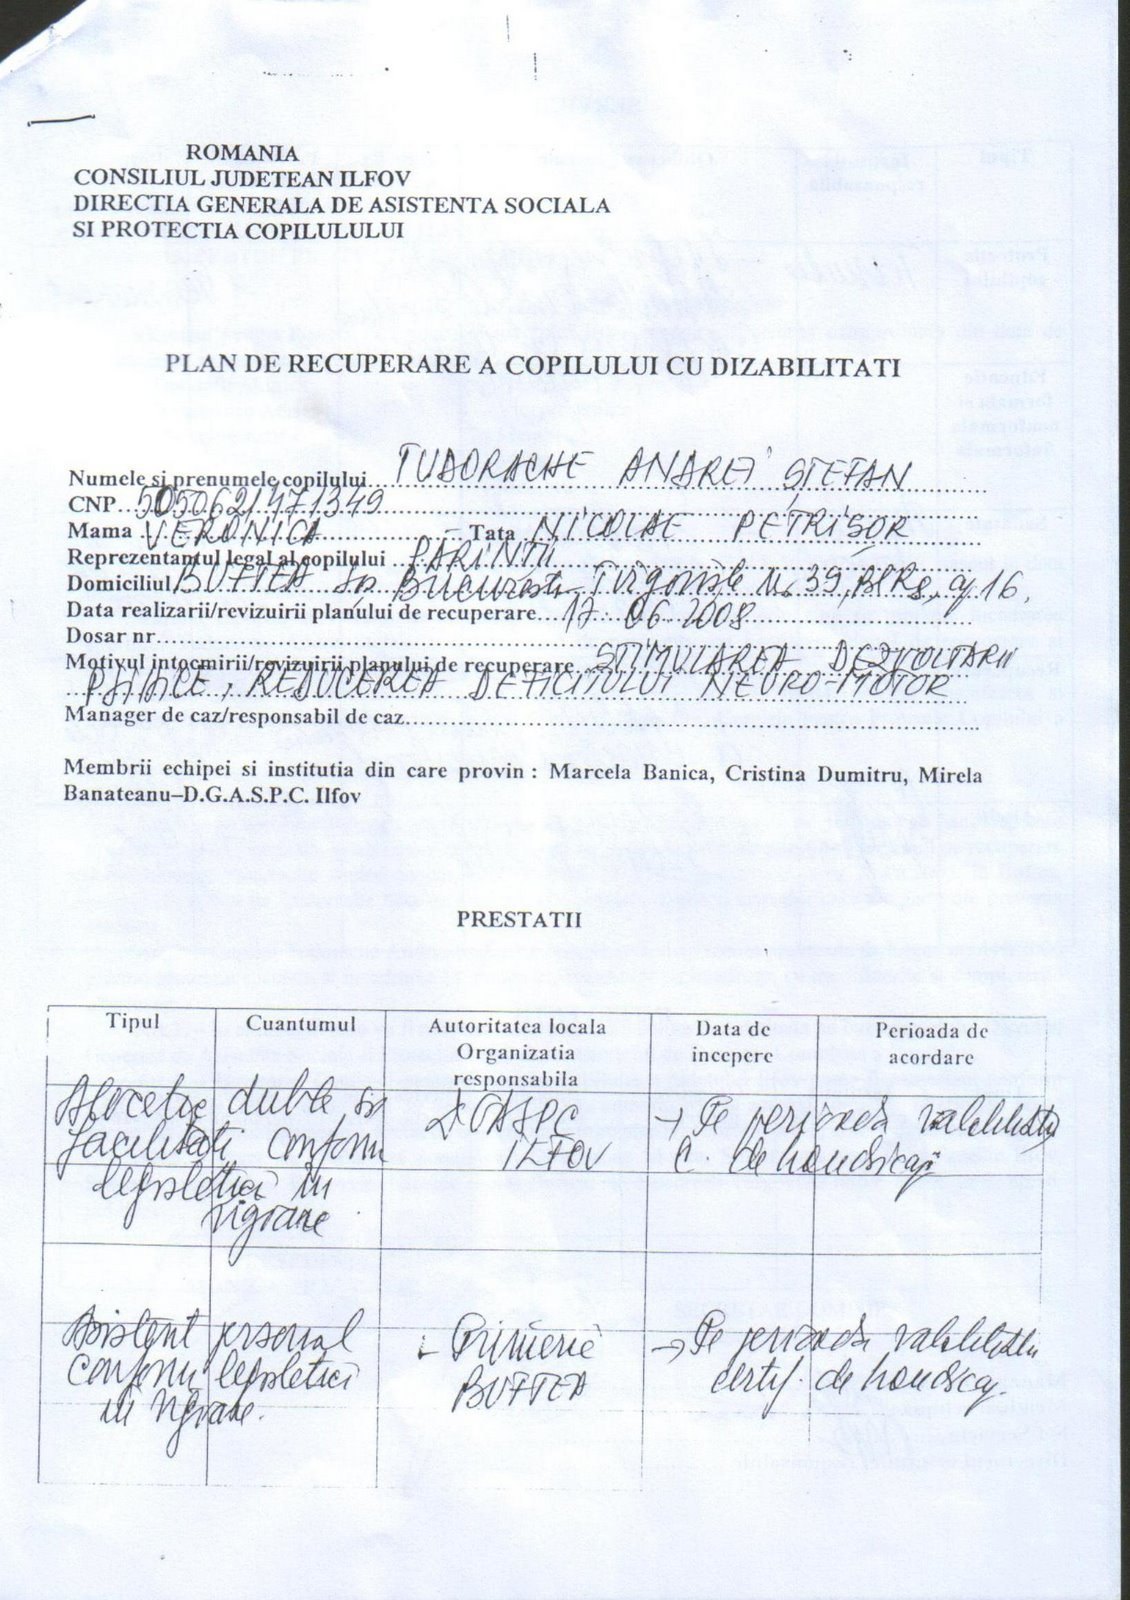 ROMANIA
CONSILIUL JUDETEAN ILFOV
DIRECTIA GENERALA DE ASISTENTA SOCIALA
SI PROTECTIA COPILULULUI
PLAN DE RECUPERARE A COPILULUI CU DIZABILITATI
Numele si prenumele copilului TUDORACHE ANDREI STEFAN
CNP 5050621471349
Mama VERONICA - Tata NICOLAE PETRISOR
Reprezentantul legal al copilului PARINTII
Domiciliul BUFTEA Bucuresti Nr. 39, Bl R8, 16.
Data realizarii/revizuirii planului de recuperare 17.06.2008
Dosar nr
Motivul intocmirii/revizuirii planului de recuperare STIMULAREA DEZVOLTARII
PSIHICE, REDUCEREA DEFICITULUI NEURO-MOTOR
Manager de caz/responsabil de caz
Membrii echipei si institutia din care provin : Marcela Banica, Cristina Dumitru, Mirela
Banateanu–D.G.A.S.P.C. Ilfov
PRESTATII
Tipul Cuantumul Autoritatea locala Data de Perioada de
Organizatia incepere acordare
responsabila
Alocatie dubla si DGASPC → Pe perioada valabilitatii
facilitati conform ILFOV c. de handicap
legislatiei in
vigoare
Asistent personal - Primaria → Pe perioada valabilitatii
conform legislatiei BUFTEA certif. de handicap.
in vigoare.